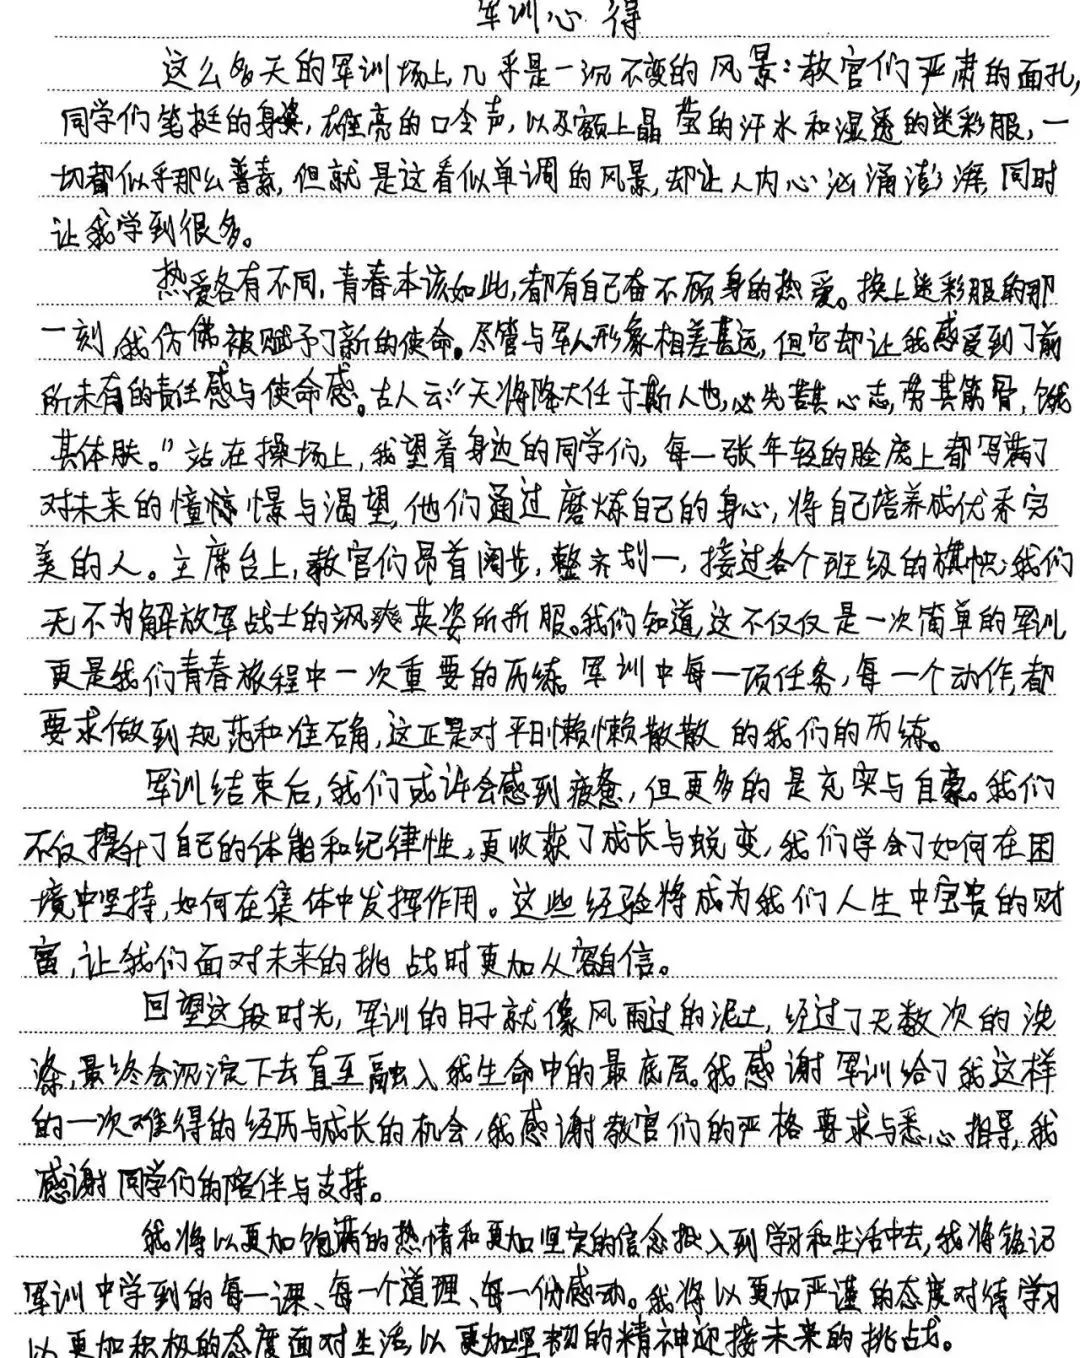 军训心得
这么多天的军训场上几乎是一沉不变的风景：教官们严肃的面孔,
同学们笔挺的身姿,雄亮的口令声,以及额上晶莹的汗水和湿透的迷彩服,一
切都似乎那么普素,但就是这看似单调的风景,却让人内心汹涌澎湃,同时
让我学到很多。
热爱各有不同,青春本该如此,都有自己奋不顾身的热爱。换上迷彩服的那
一刻,我仿佛被赋予了新的使命。尽管与军人形象相差甚远,但它却让我感受到了前
所未有的责任感与使命感。古人云:“天将降大任于斯人也,必先苦其心志,劳其筋骨,饿
其体肤。”站在操场上,我望着身边的同学们,每一张年轻的脸庞上都写满了
对未来的憧憬与渴望,他们通过磨炼自己的身心,将自己培养成优秀完
美的人。主席台上,教官们昂首阔步,整齐划一,接过各个班级的旗帜;我们
无不为解放军战士的飒爽英姿所折服。我们知道,这不仅仅是一次简单的军训
更是我们青春旅程中一次重要的历练。军训中每一项任务,每一个动作,都
要求做到规范和准确,这正是对平日懒懒散散的我们的历练。
军训结束后,我们或许会感到疲惫,但更多的是充实与自豪。我们
不仅提升了自己的体能和纪律性,更收获了成长与蜕变,我们学会了如何在困
境中坚持,如何在集体中发挥作用。这些经验将成为我们人生中宝贵的财
富,让我们面对未来的挑战时更加从容自信。
回望这段时光,军训的日子就像风雨过的泥土,经过了无数次的洗
涤,最终会沉淀下去直至融入我生命中的最底层。我感谢军训给了我这样
的一次难得的经历与成长的机会,我感谢教官们的严格要求与悉心指导,我
感谢同学们的陪伴与支持。
我将以更加饱满的热情和更加坚定的信念投入到学习和生活中去,我将铭记
军训中学到的每一课、每一个道理、每一份感动。我将以更加严谨的态度对待学习
以更加积极的态度面对生活,以更加坚韧的精神迎接未来的挑战。